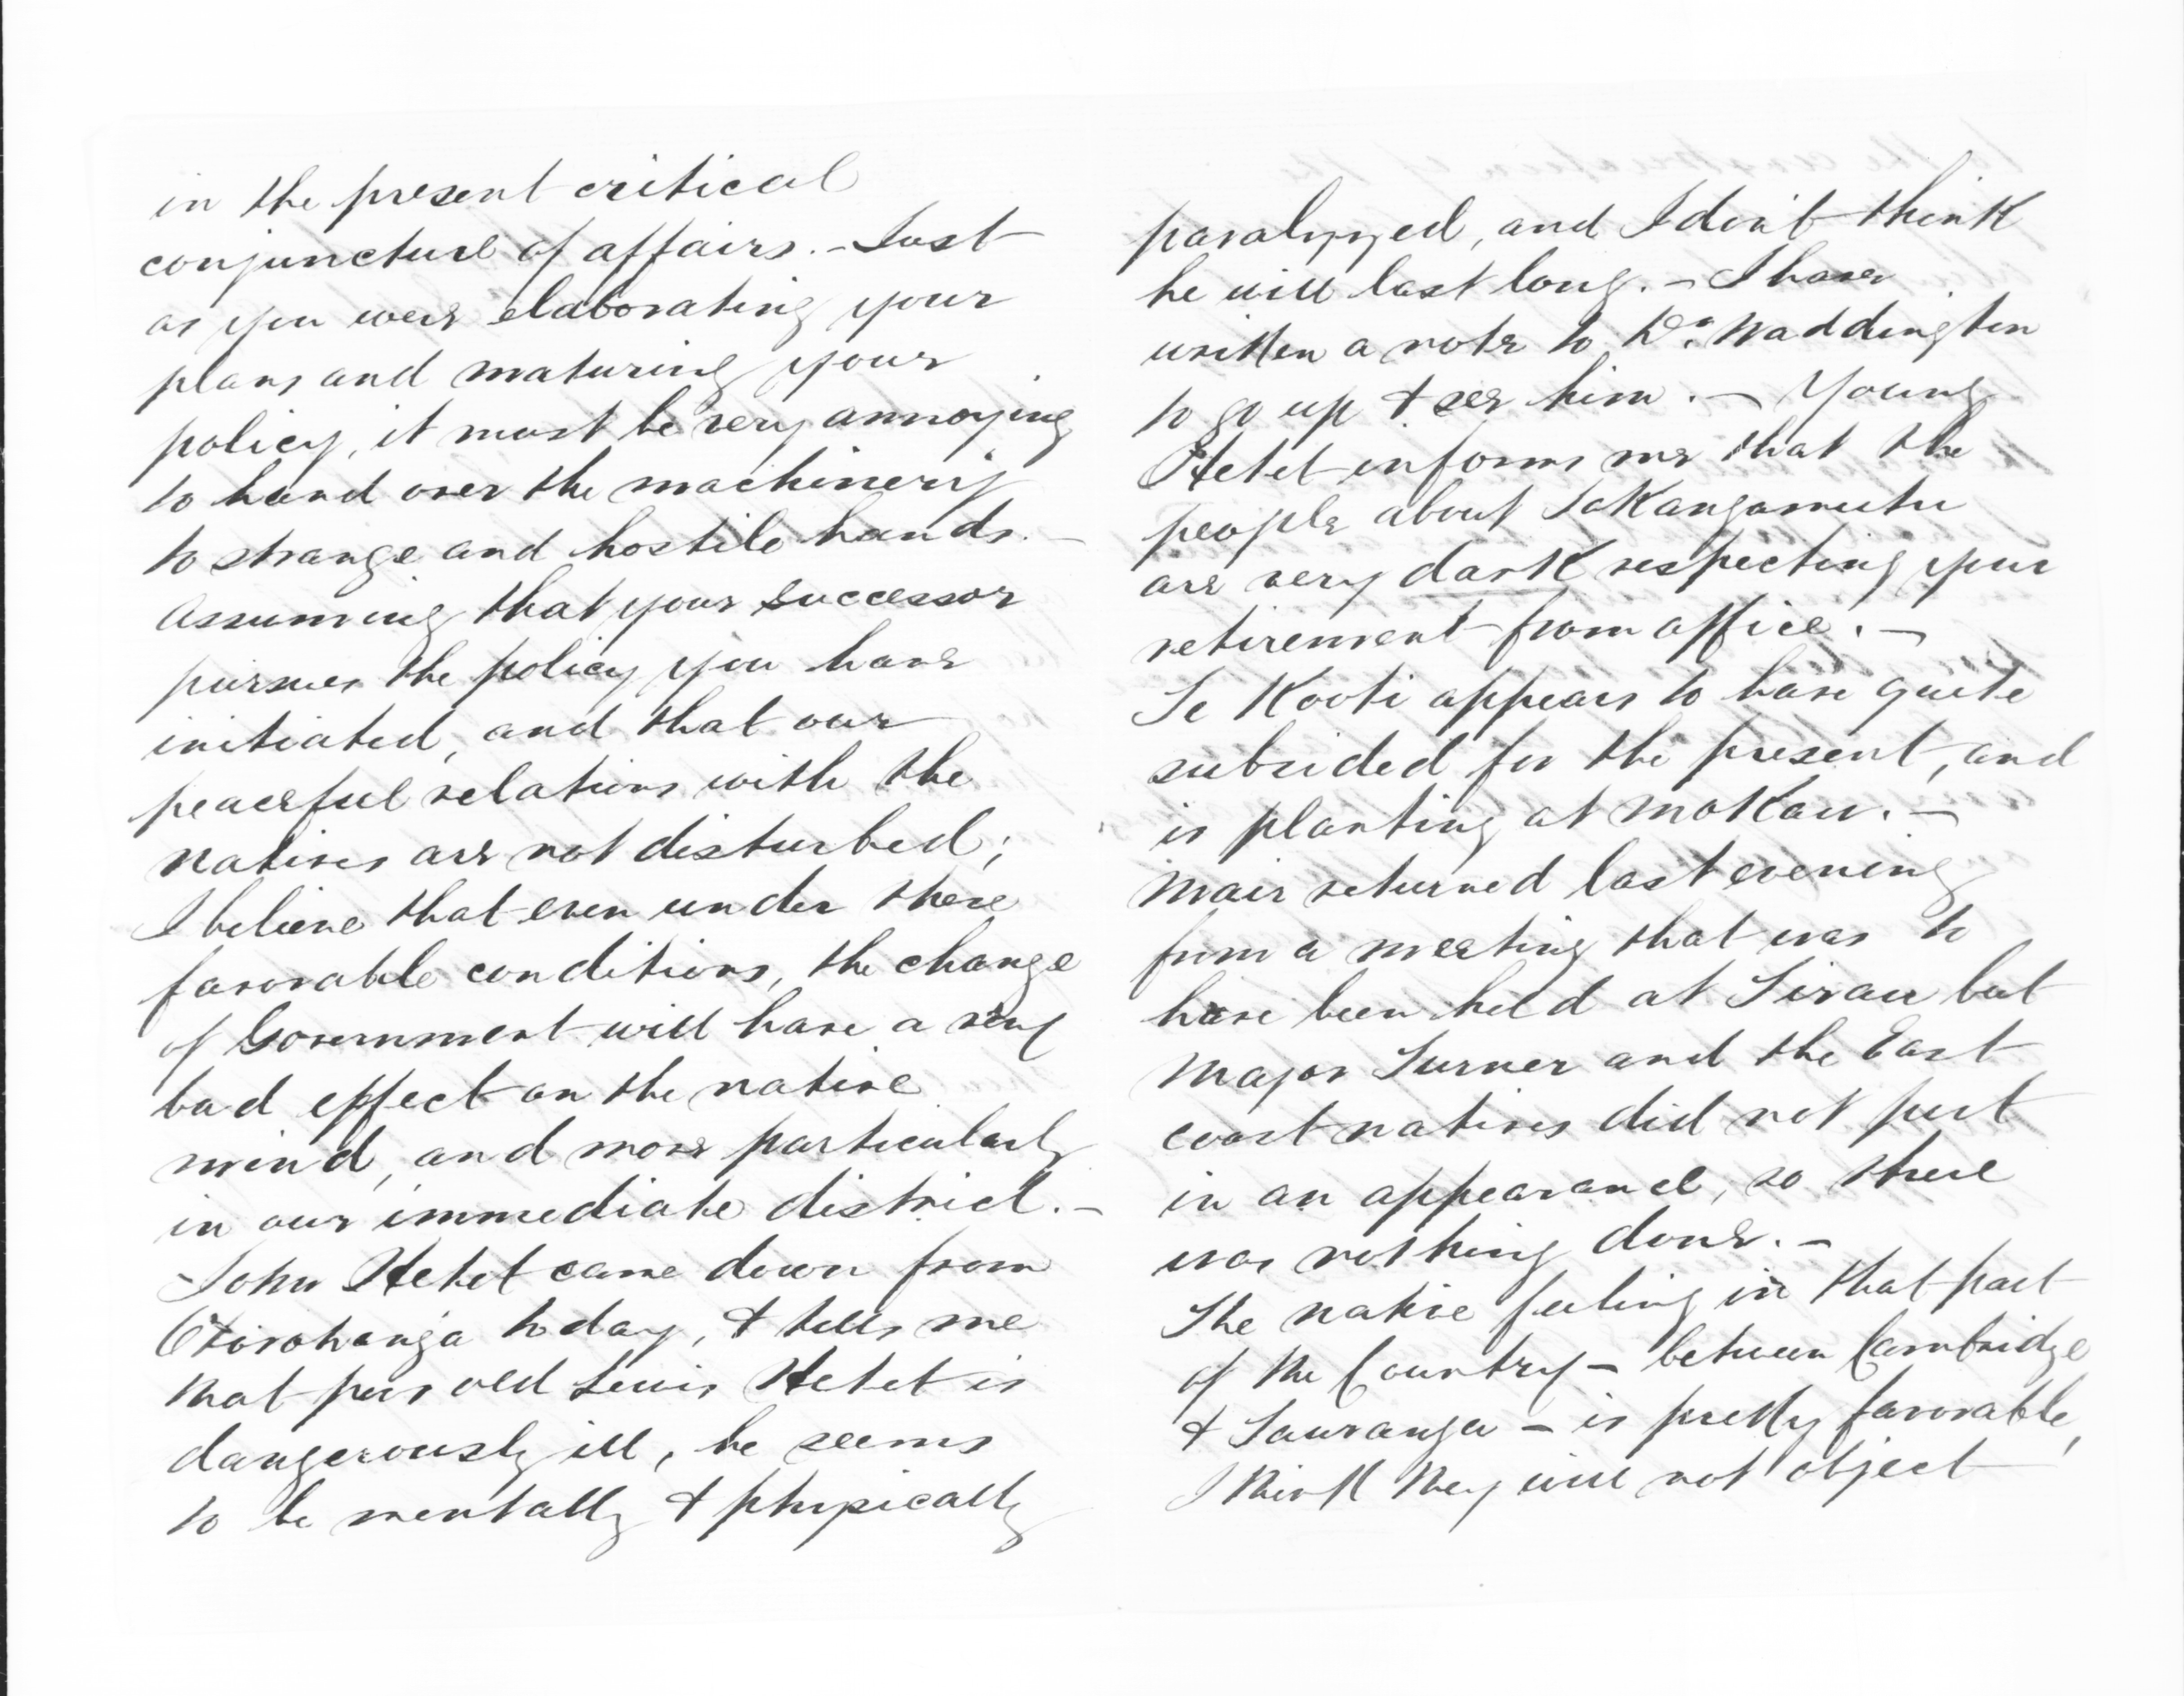 in the present critical
conjuncture of affairs. - Just
as you were elaborating your
plans and maturing your
policy, it must be very annoying
to hand over the machinery
to strange and hostile hands. -
Assuming that your successor
pursues the policy you have
initiated, and that our
peaceful relations with the
natives are not disturbed;
I believe that even under these
favorable conditions, the change
of Government will have a very
bad effect on the native
mind, and more particularly
in our immediate district. -
John Hetet came down from
Otorohanga to day, & tells me
that poor old Lewis Hetet is
dangerously ill, he seems
to be mentally & physically
paralyzed, and I don't think
he will last long. - I have
written a note to Dr. Waddington
to go up & see him. - Young
Hetet informs me that the
people about Tokangamutu
are very dark respecting your
retirement from office. -
Te Kooti appears to have quite
subsided for the present, and
is planting at Mokau. -
Mair returned last evening
from a meeting that was to
have been held at Tirau but
Major Turner and the East
coast natives did not put
in an appearance, so there
was nothing done. -
The native feeling in that part
of the Country - between Cambridge
& Tauranga - is pretty favorable,
I think they will not object